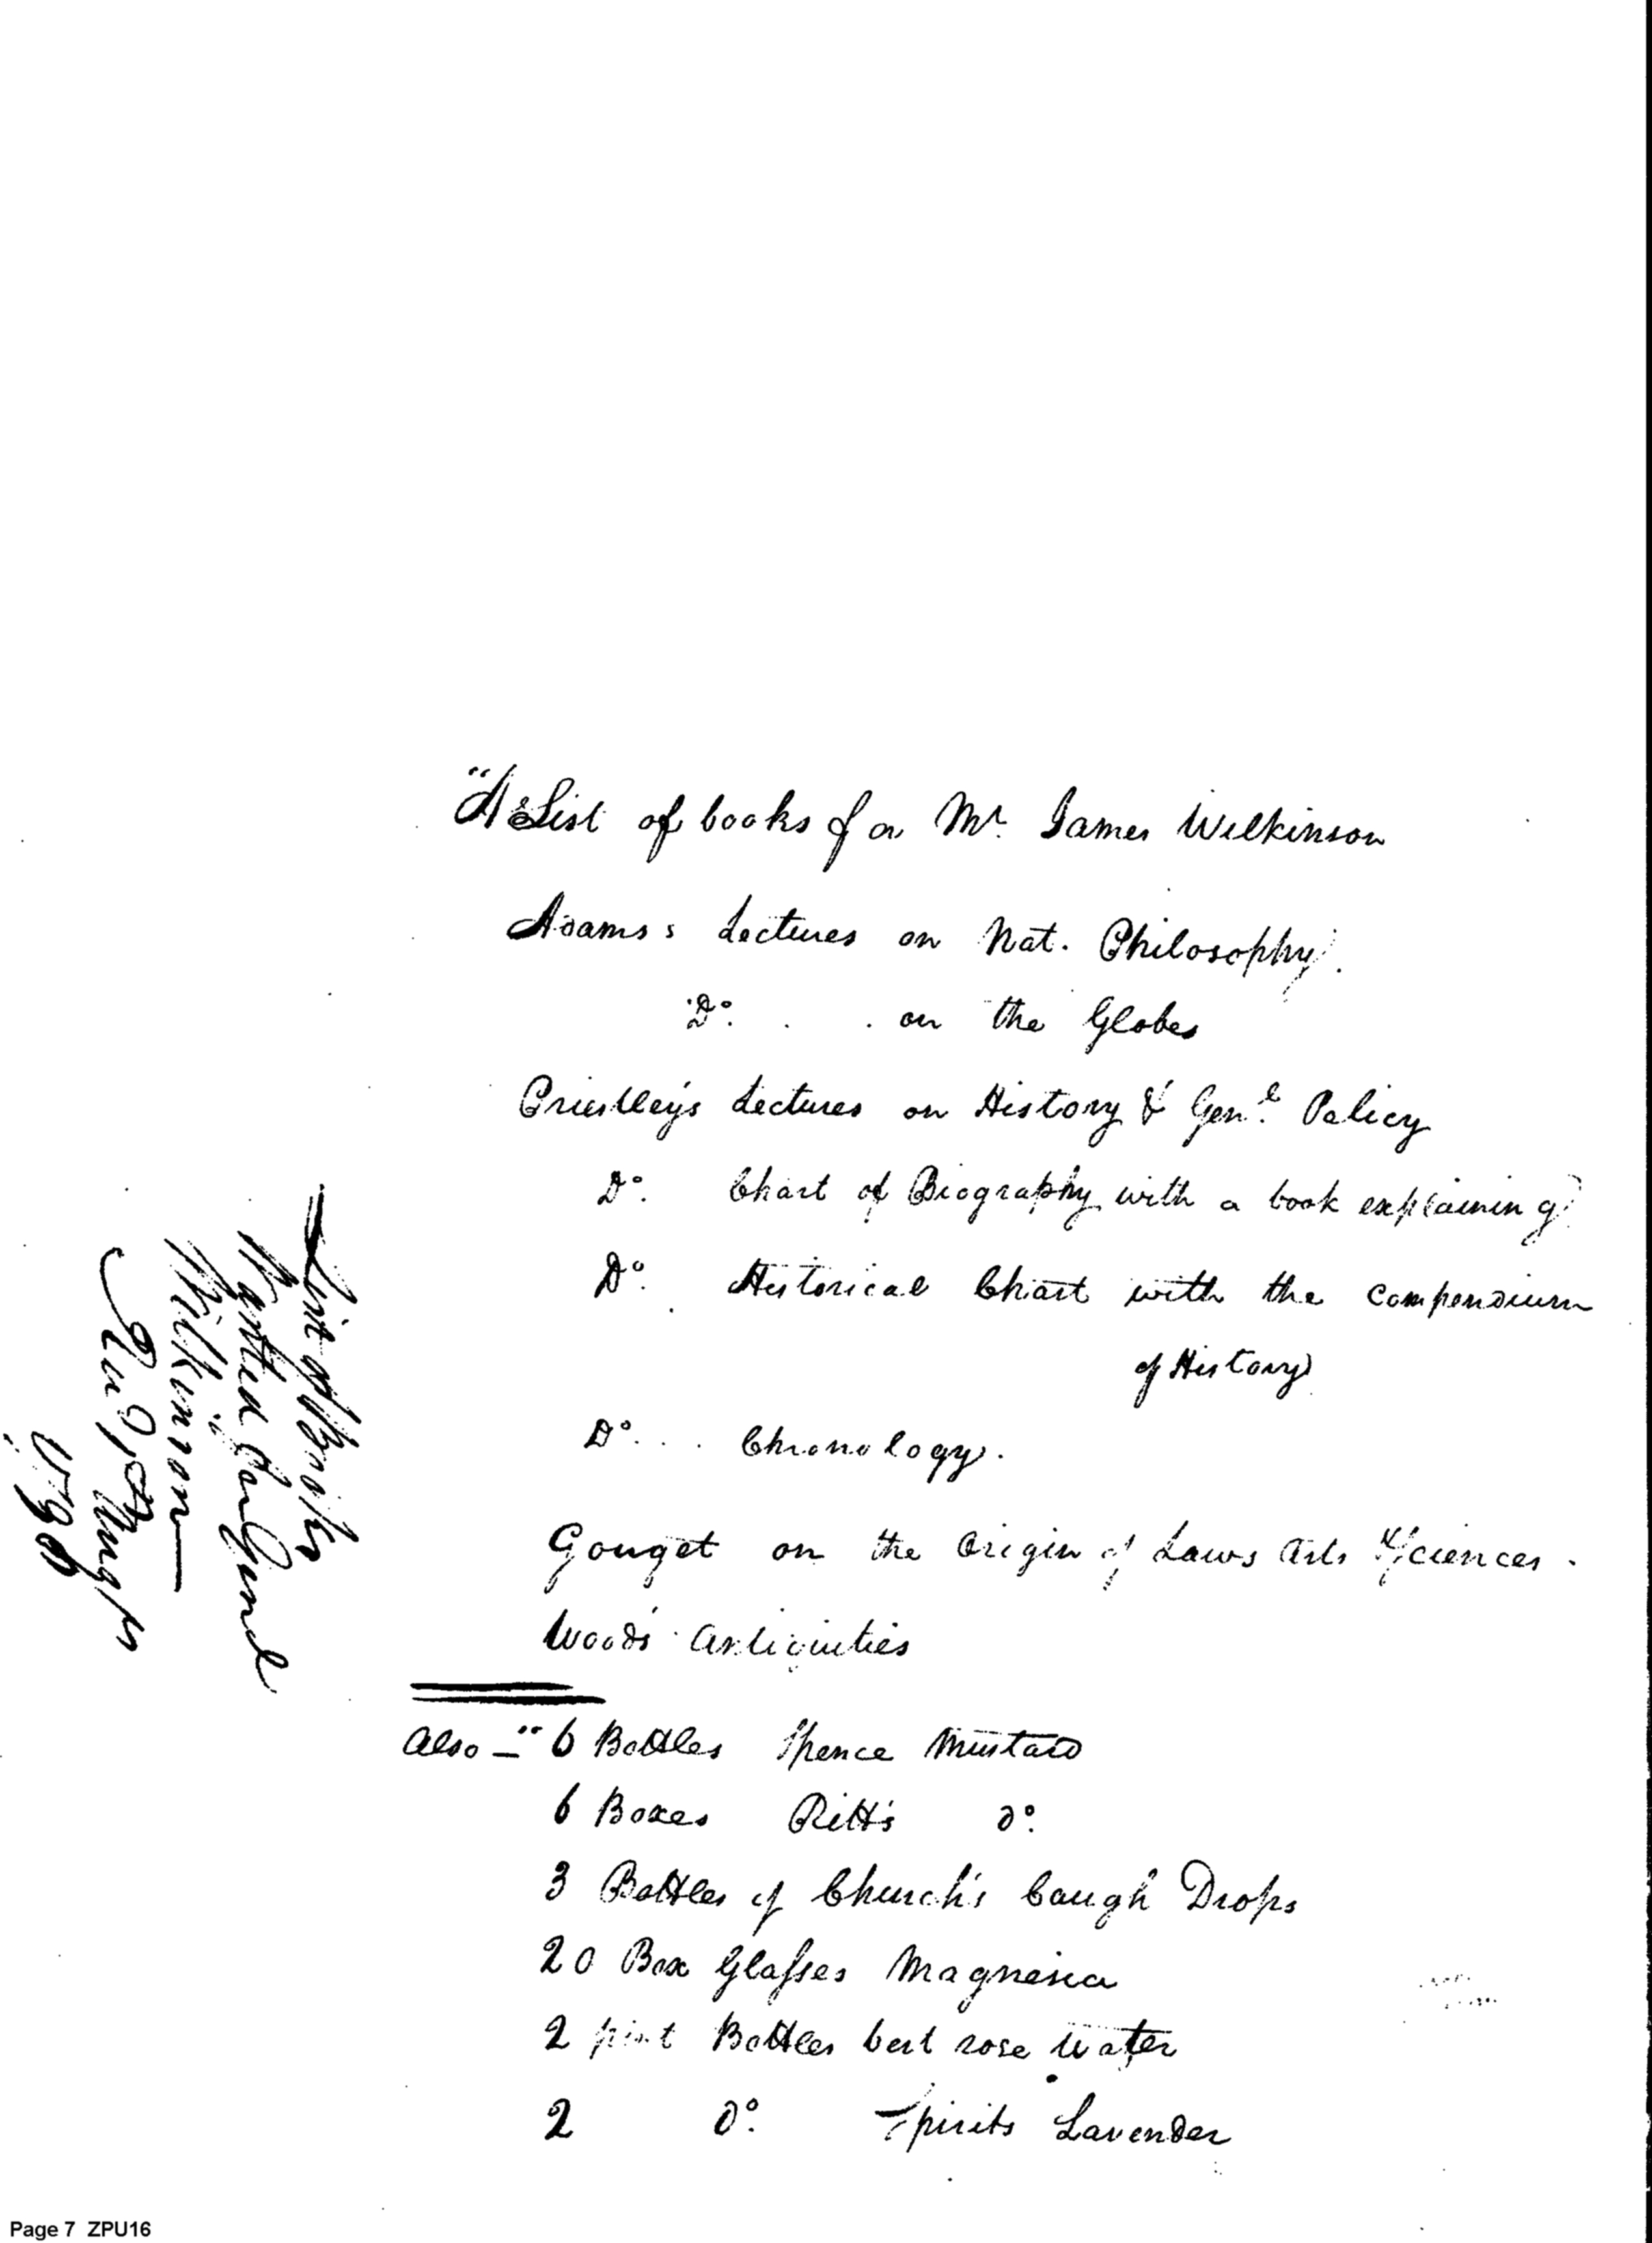 "A List of books for Mr. James Wilkinson
Adams's Lectures on Nat. Philosophy.
Do. . . on the Globes
Priestley's Lectures on History & Genl. Policy
Do. Chart of Biography with a book explaining
Do. Historical Chart with the Compendium
of History
Do. . . Chronology.
Gouget on the Origin of Laws Arts & Sciences.
Wood's Antiquities
Also — " 6 Bottles Spence Mustard
6 Boxes Pitt's do.
3 Bottles of Church's Cough Drops
20 Box Glasses Magnesia
2 pint Bottles best rose water
2 Do. Spirits Lavender
List of Books
Wanted
Wilkinson
Page 7 ZPU16